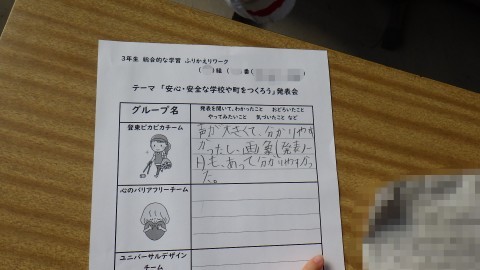 3年生 総合的な学習 ふりかえりワーク
( )組 ( )番( )
テーマ 「安心・安全な学校や町をつくろう」発表会
グループ名
発表を聞いて、わかったこと おどろいたこと
やってみたいこと 気づいたこと など
音東ピカピカチーム
声が大きくて、分かりやす
かったし、画象(発表ノー
ト)も、あって分かりやすかっ
た。
心のバリアフリーチーム
ユニバーサルデザイン
チーム